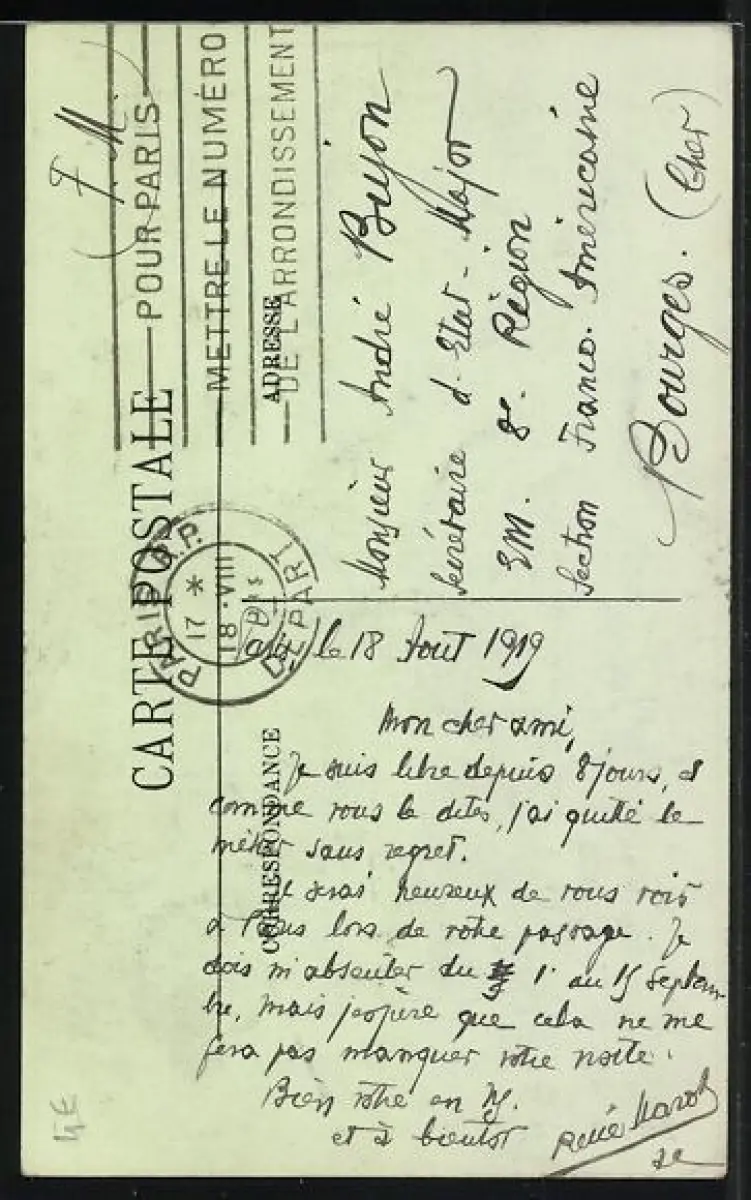 CARTE POSTALE
(F. M.)
POUR PARIS
METTRE LE NUMÉRO
DE L'ARRONDISSEMENT
ADRESSE
Monsieur André Buyon
Secrétaire d'Etat-Major
EM. 8e. Région
Section Franco-Américaine
Bourges. (Cher)
PARIS R.P.
17 *
18 · VIII
DÉPART
CORRESPONDANCE
Paris le 18 Août 1919
Mon cher ami,
Je suis libre depuis 8 jours, et
comme vous le dites, j'ai quitté le
métier sans regret.
Je serai heureux de vous voir
à Paris lors de votre passage. Je
dois m'absenter du 1r au 15 Septem
bre, mais j'espère que cela ne me
fera pas manquer votre visite.
Bien vôtre en
et à bientôt
René
4€